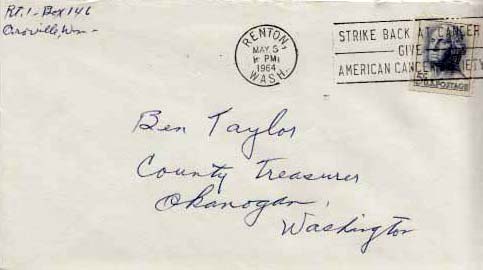 Rt. 1 - Box 146
Oroville, Wn -
RENTON,
MAY 5
PM
1964
WASH.
STRIKE BACK AT CANCER
GIVE
AMERICAN CANCER SOCIETY
5c
U.S. POSTAGE
Ben Taylor
County Treasurer
Okanogan,
Washington